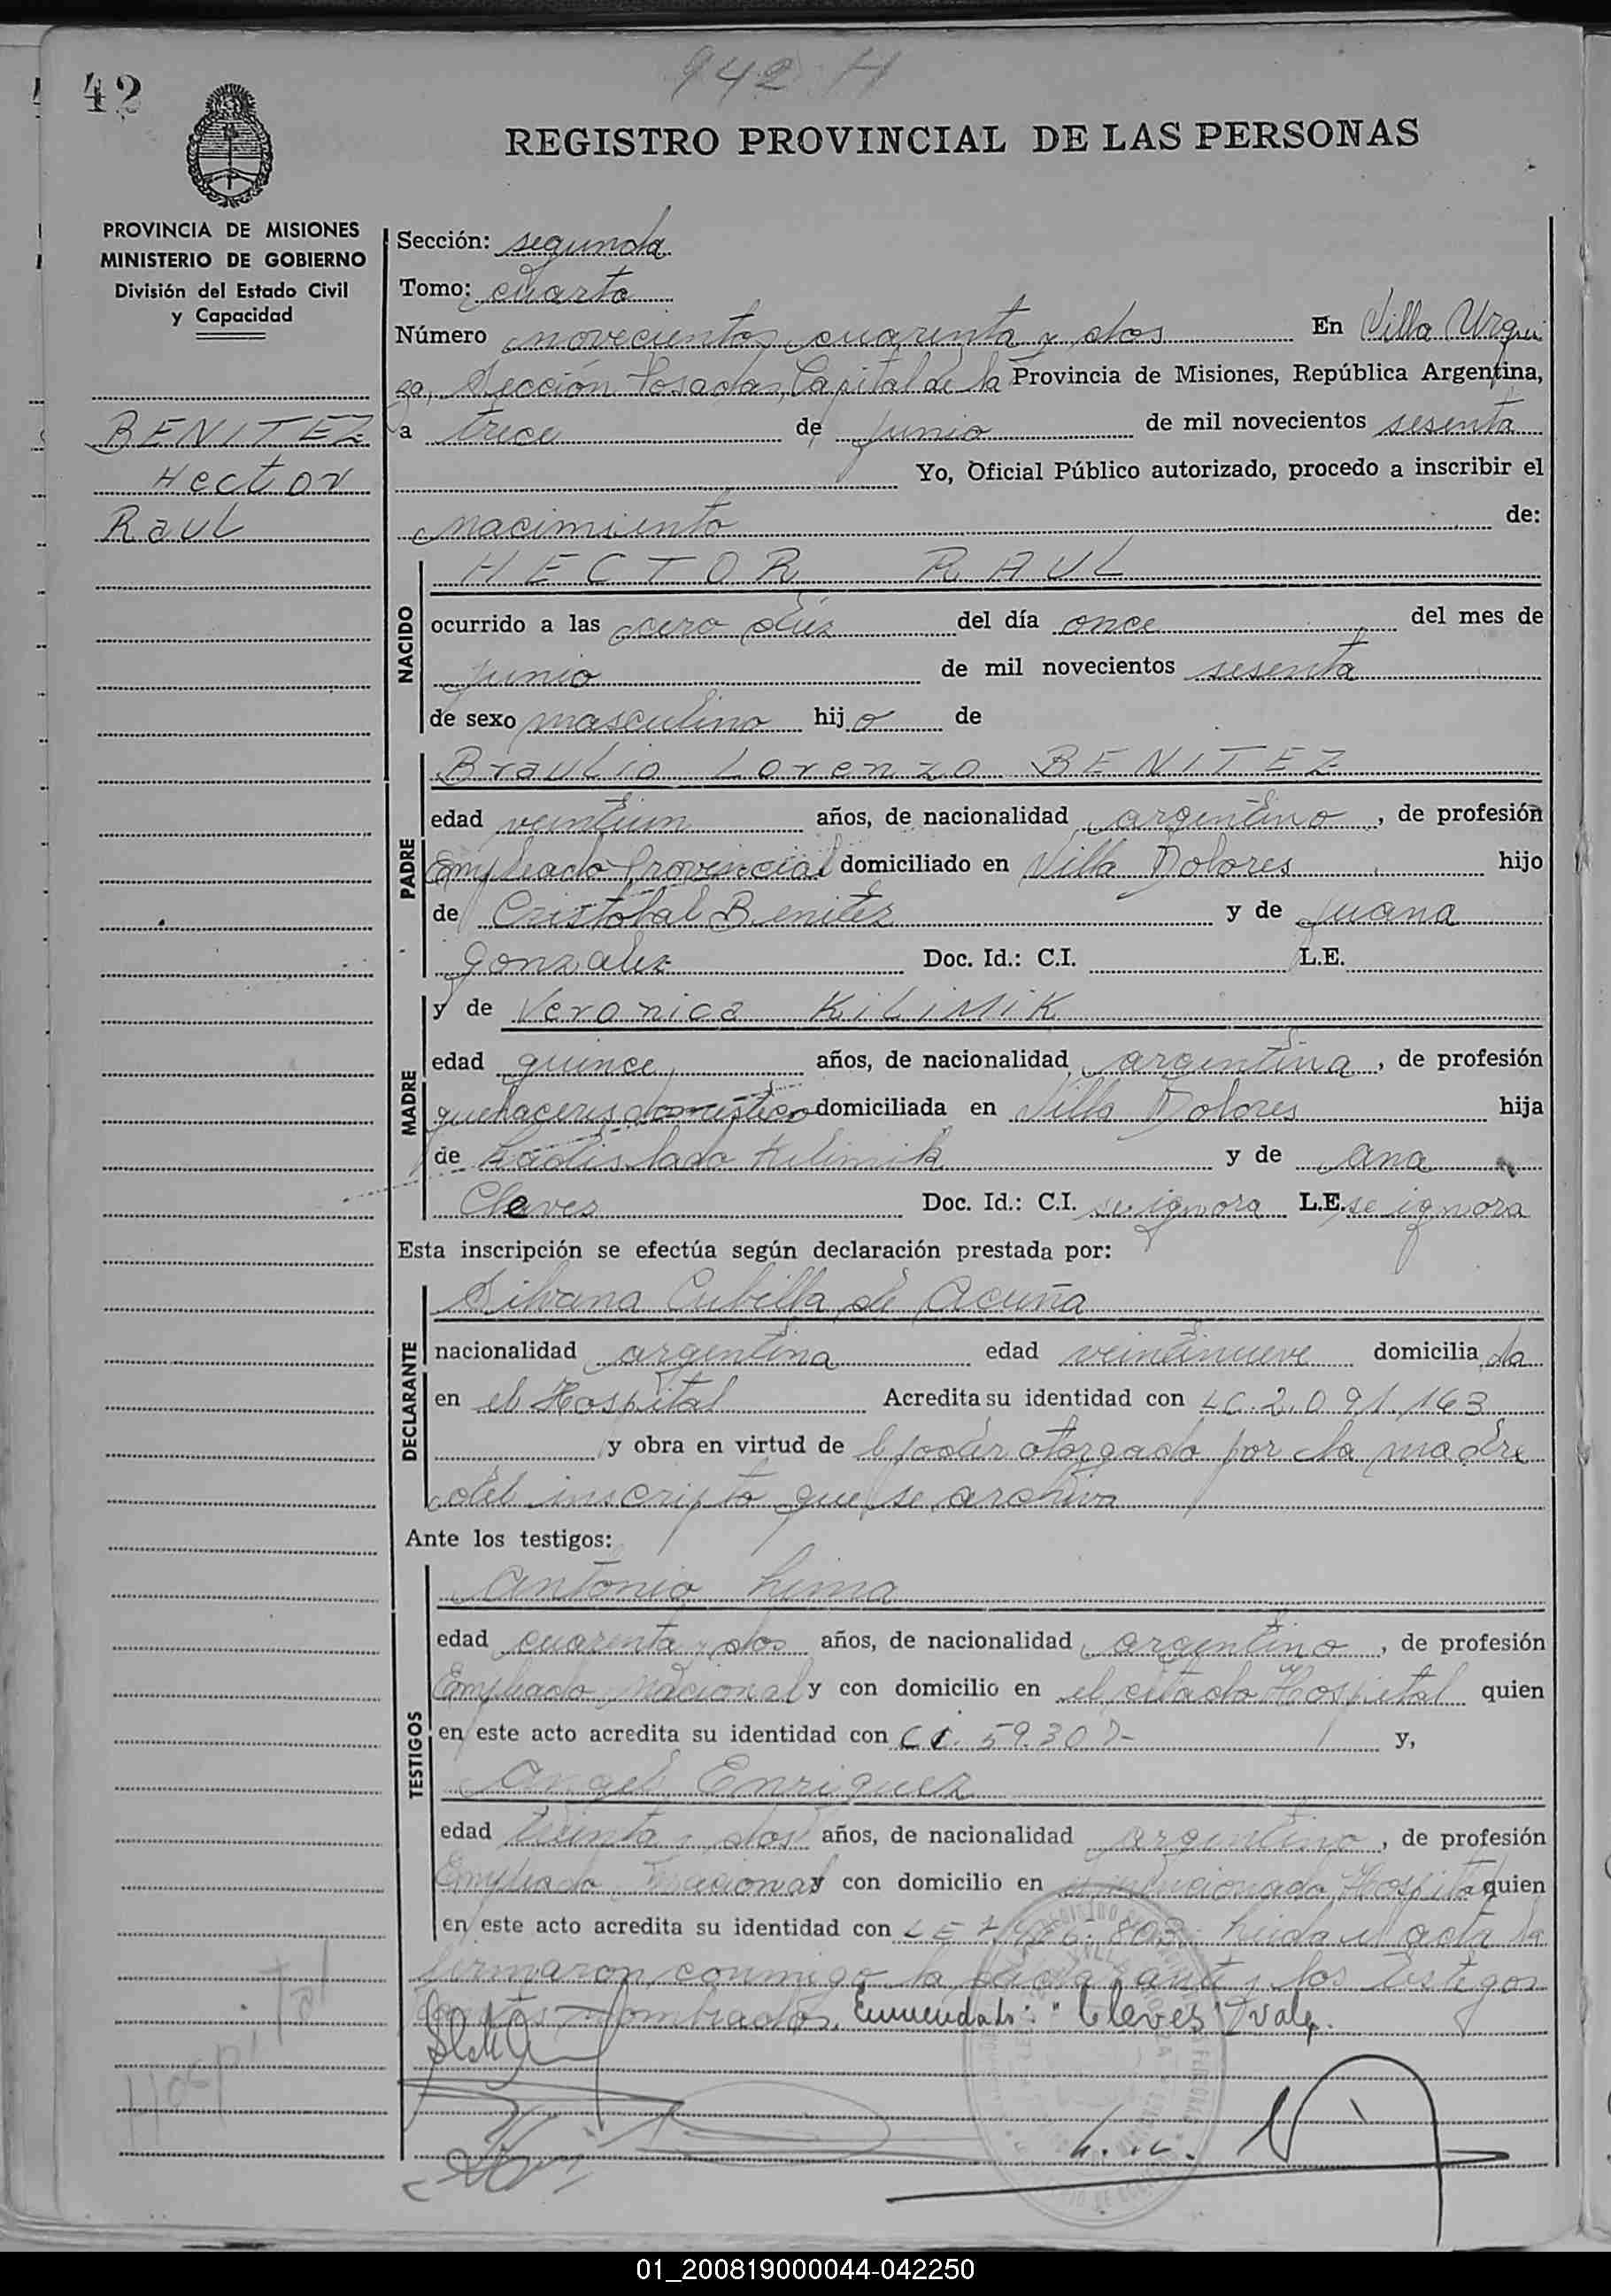 942 H
42
REGISTRO PROVINCIAL DE LAS PERSONAS
PROVINCIA DE MISIONES
MINISTERIO DE GOBIERNO
División del Estado Civil
y Capacidad
BENITEZ
Hector
Raul
Sección: segunda
Tomo: cuarto
Número novecientos cuarenta y dos En Villa Urqui
za, Sección Posadas, Capital de la Provincia de Misiones, República Argentina,
a trece de junio de mil novecientos sesenta
Yo, Oficial Público autorizado, procedo a inscribir el
nacimiento de:
NACIDO
HECTOR RAUL
ocurrido a las cero diez del día once del mes de
junio de mil novecientos sesenta
de sexo masculino hijo de
PADRE
Braulio Lorenzo BENITEZ
edad veintiun años, de nacionalidad argentino, de profesión
Empleado Provincial domiciliado en Villa Dolores hijo
de Cristobal Benitez y de Juana
Gonzalez Doc. Id.: C.I. L.E.
MADRE
y de Veronica KiLiMiK
edad quince años, de nacionalidad argentina, de profesión
quehaceres domestico domiciliada en Villa Dolores hija
de Ladislado Kilimik y de Ana
Cleves Doc. Id.: C.I. se ignora L.E. se ignora
Esta inscripción se efectúa según declaración prestada por:
DECLARANTE
Silvana Cubilla de Acuña
nacionalidad argentina edad veintinueve domiciliada
en el Hospital Acredita su identidad con LC. 2.091.163
y obra en virtud de el poder otorgado por la madre
del inscripto que se archiva
Ante los testigos:
TESTIGOS
Antonio Lima
edad cuarenta y dos años, de nacionalidad argentino, de profesión
Empleado Nacional y con domicilio en el citado Hospital quien
en este acto acredita su identidad con CI. 59.307- y,
Angel Enriquez
edad treinta y dos años, de nacionalidad argentino, de profesión
Empleado Nacional y con domicilio en el mencionado Hospital quien
en este acto acredita su identidad con LE 803. Leida el acta la
firmaron conmigo la declarante y los testigos
nombrados. Enmendado: "Cleves" Vale.
Hospital
01_200819000044-042250